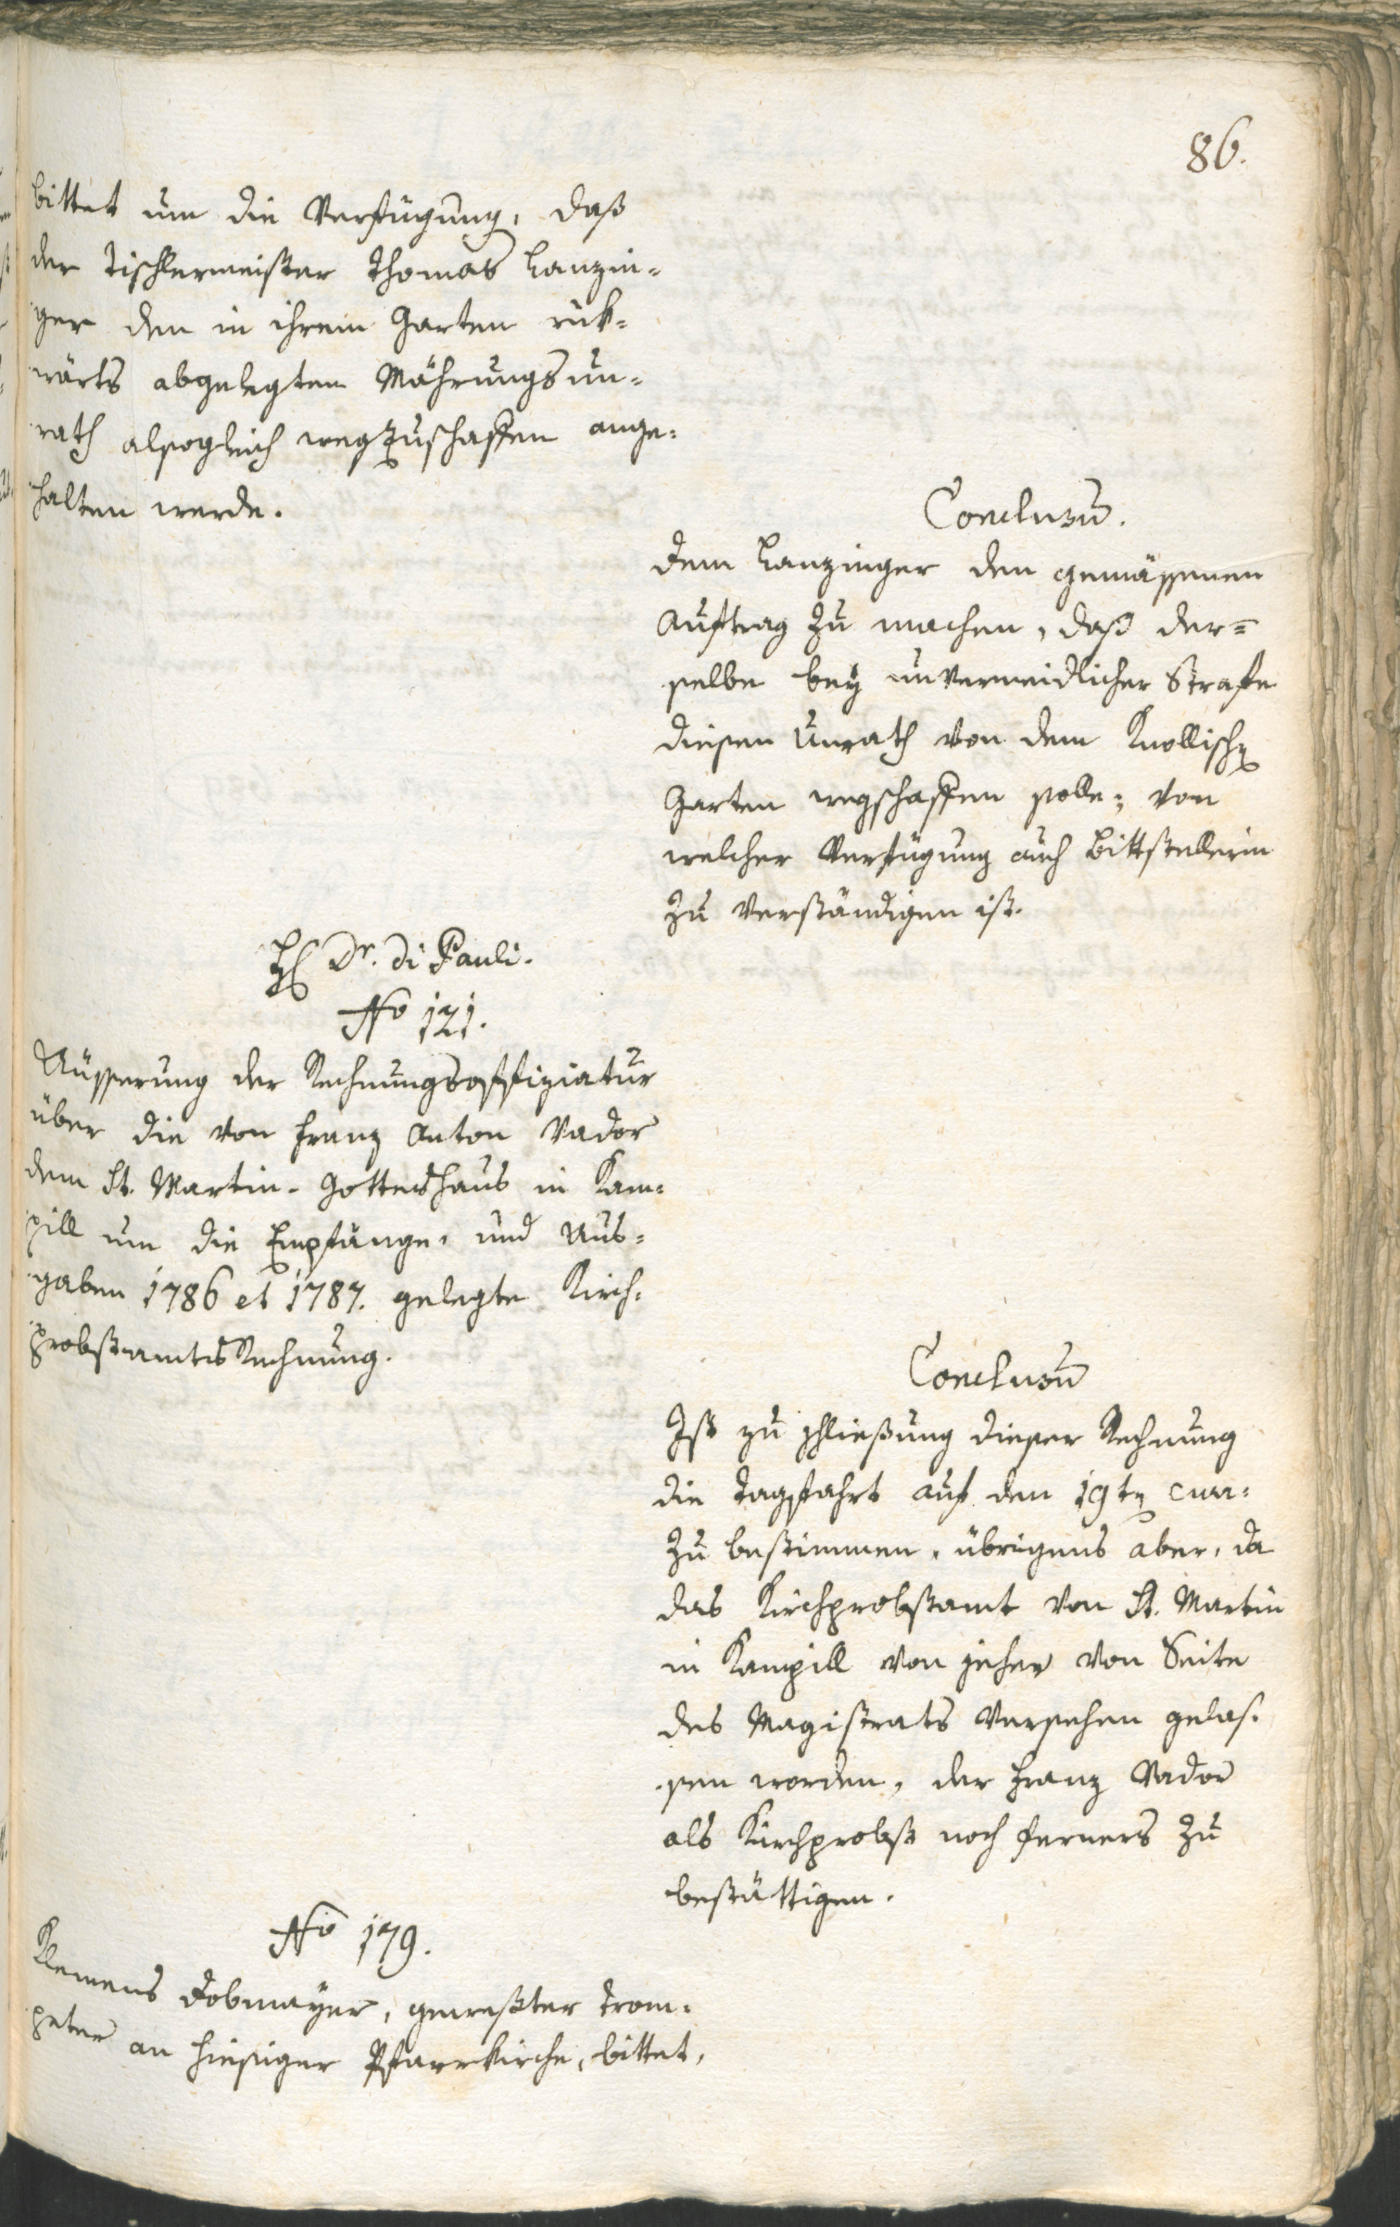 86.
bittet um die Verfügung, daß
der Tischlermeister Thomas Lanzin-
ger den in ihrem Garten rük-
wärts abgelegten Mährungsun-
rath alsogleich wegzuschaffen ange-
halten werde.
Conclusū.
dem Lanzinger den gemässenen
Auftrag zu machen, daß der=
selbe bey unvermeidlicher Strafe
diesen Unrath von dem Knollisch
Garten wegschaffen solle; von
welcher Verfügung auch Bittstellerin
zu verständigen ist.
H Dr. di Pauli.
No 121.
Aüsserung der Rechnungsoffiziatur
über die von Franz Anton Vador
dem St. Martin-Gotteshaus in Kam-
pill um die Empfänge, und Aus-
gaben 1786 et 1787. gelegte Kirch-
probstamtsRechnung.
Conclusū
Ist zu schließung dieser Rechnung
die Tagsfahrt auf den 19t curr:
zu bestimmen, übrigens aber, da
das Kirchprobstamt von St. Martin
in Kampill von jeher von Seite
des Magistrats versehen gelas-
sen worden, der Franz Vador
als Kirchprobst noch ferners zu
bestättigen.
No 179.
Klemens Dobmayer, gewester Trom-
peter an hiesiger Pfarrkirche, bittet,